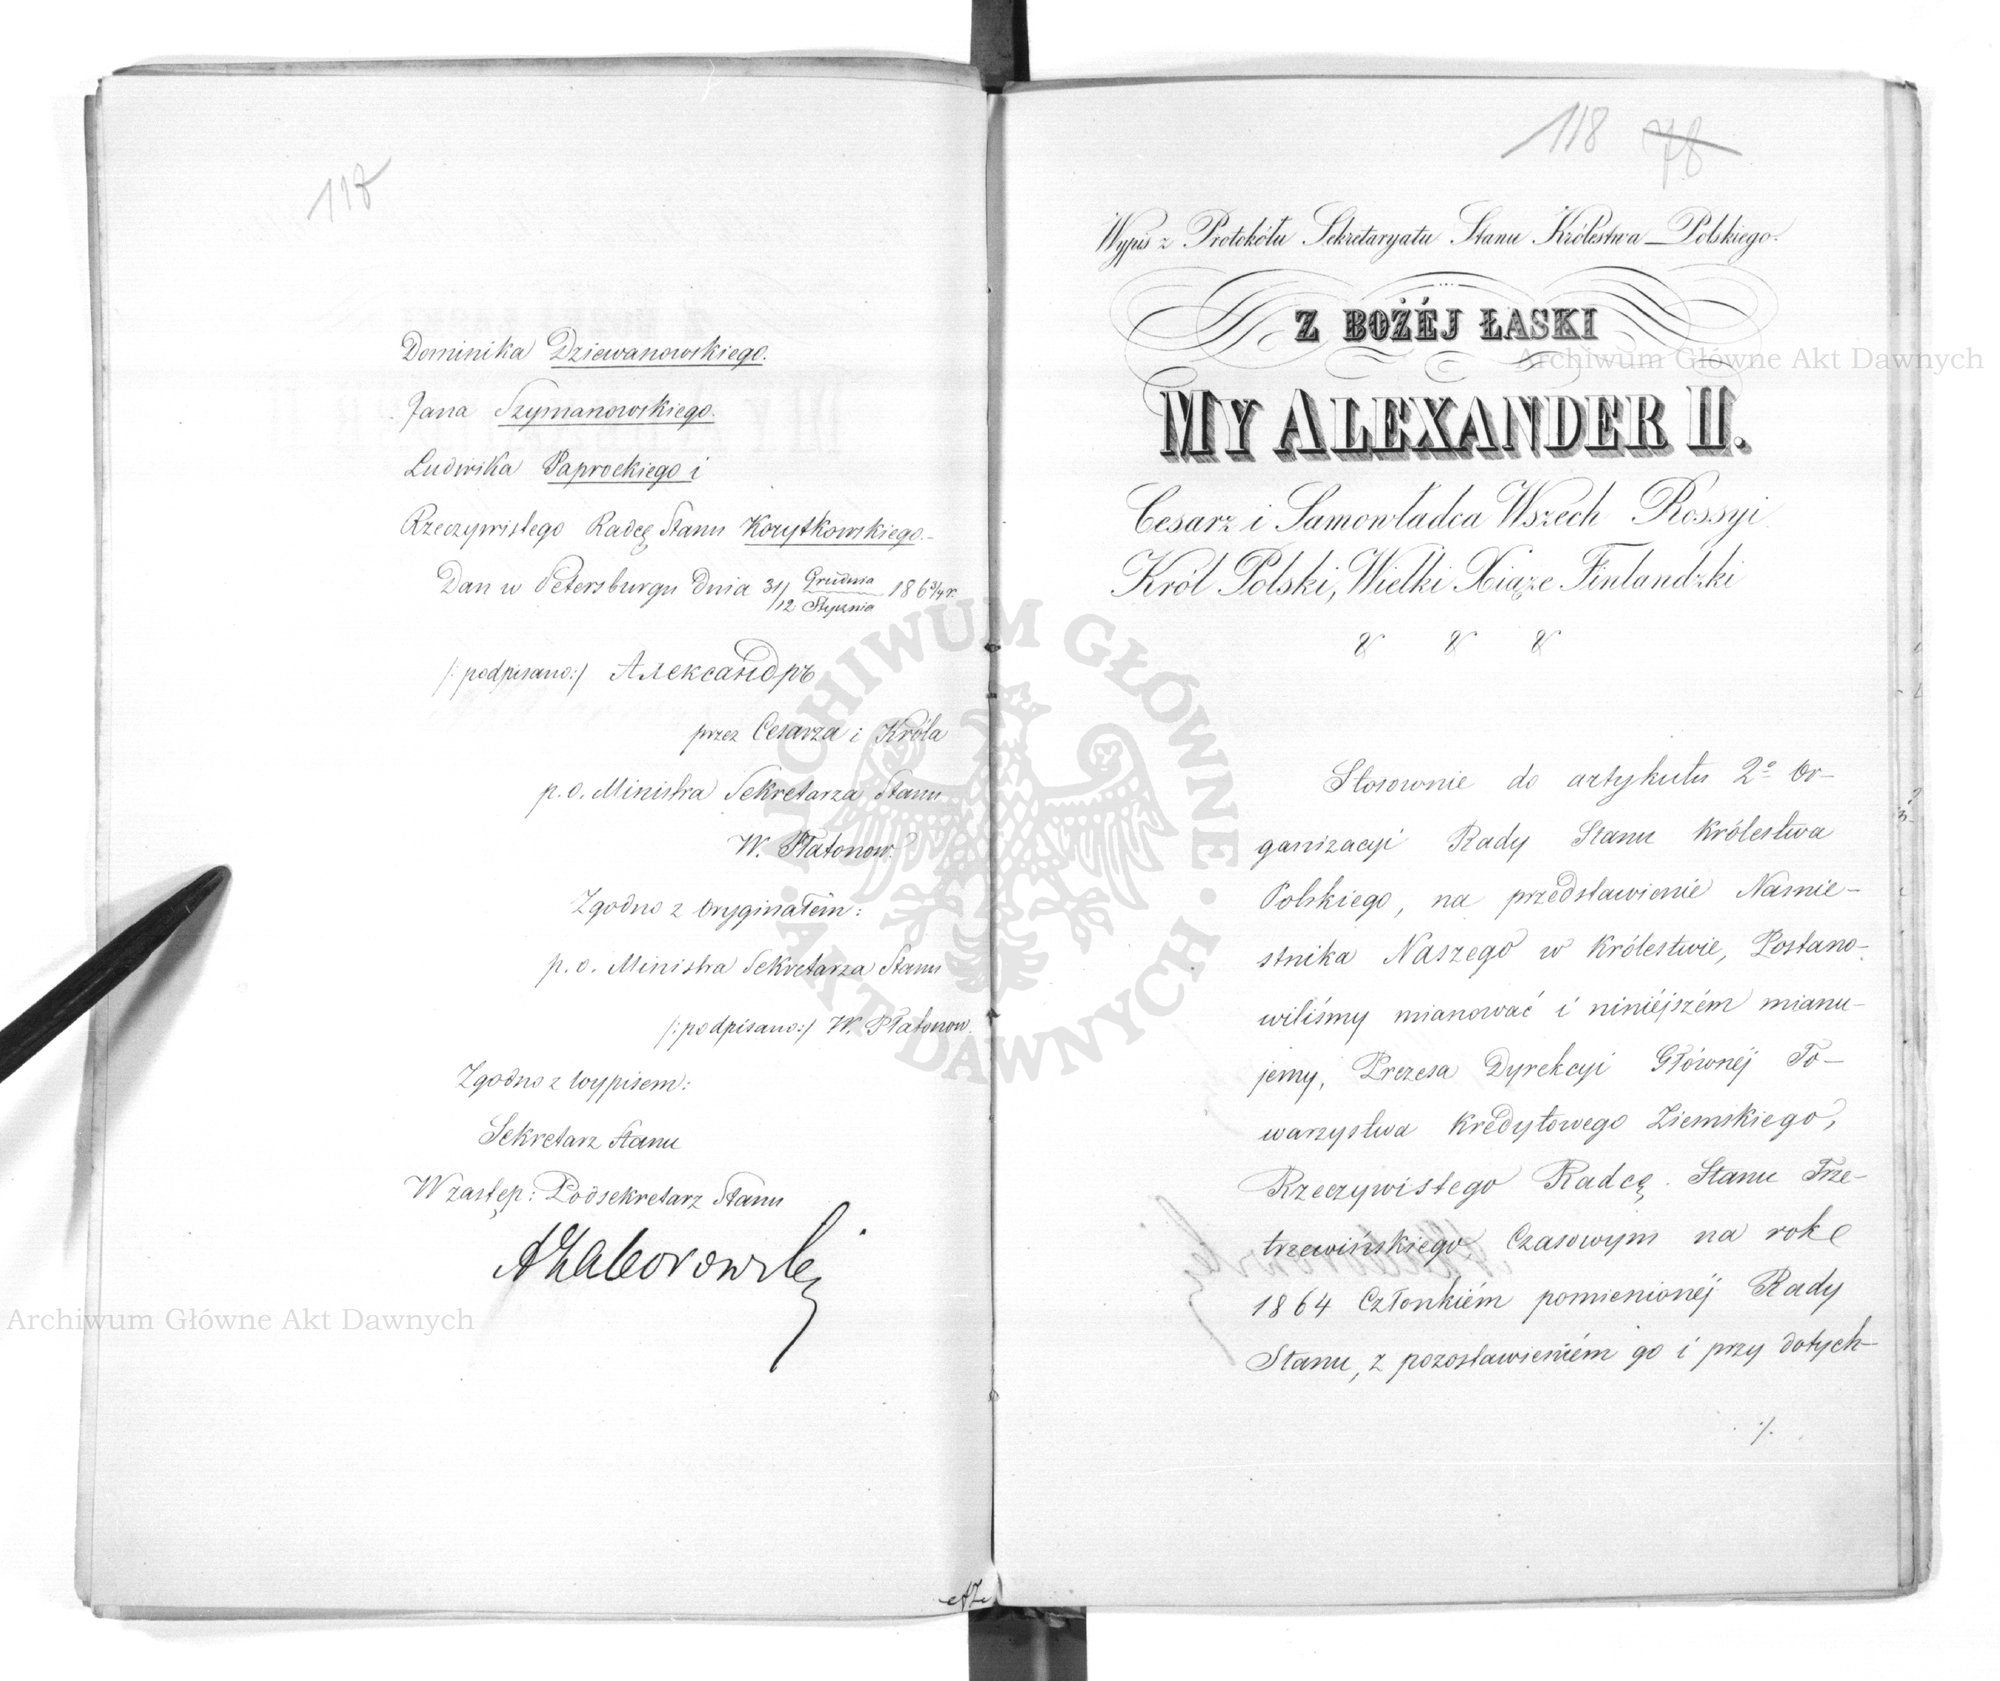 118
Dominika Dziewanowskiego.
Jana Szymanowskiego.
Ludwika Paprockiego i
Rzeczywistego Radcę Stanu Korytkowskiego.-
Dan w Petersburgu dnia 31/12 Grudnia/Stycznia 1863/4 r.
/:podpisano:/ Александръ
przez Cesarza i Króla
p. o. Ministra Sekretarza Stanu
W. Płatonow.
Zgodno z oryginałem:
p. o. Ministra Sekretarza Stanu
/:podpisano:/ W. Płatonow.
Zgodno z wypisem:
Sekretarz Stanu
W zastęp: Podsekretarz Stanu
AZaborowski
AZ
118 78
Wypis z Protokółu Sekretaryatu Stanu Królestwa Polskiego.
Z BOŻÉJ ŁASKI
MY ALEXANDER II.
Cesarz i Samowładca Wszech Rossyi
Król Polski, Wielki Xiąże Finlandzki
Stosownie do artykułu 2º Or-
ganizacyi Rady Stanu Królestwa
Polskiego, na przedstawienie Namie-
stnika Naszego w Królestwie, Postano-
wiliśmy mianować i niniéjszém mianu-
jemy, Prezesa Dyrekcyi Głównéj To-
warzystwa Kredytowego Ziemskiego,
Rzeczywistego Radcę Stanu Trze-
trzewińskiego, Czasowym na rok
1864 Członkiém pomienionéj Rady
Stanu, z pozostawieniém go i przy dotych-
./.
Archiwum Główne Akt Dawnych
Archiwum Główne Akt Dawnych
ARCHIWUM GŁÓWNE · AKT DAWNYCH ·